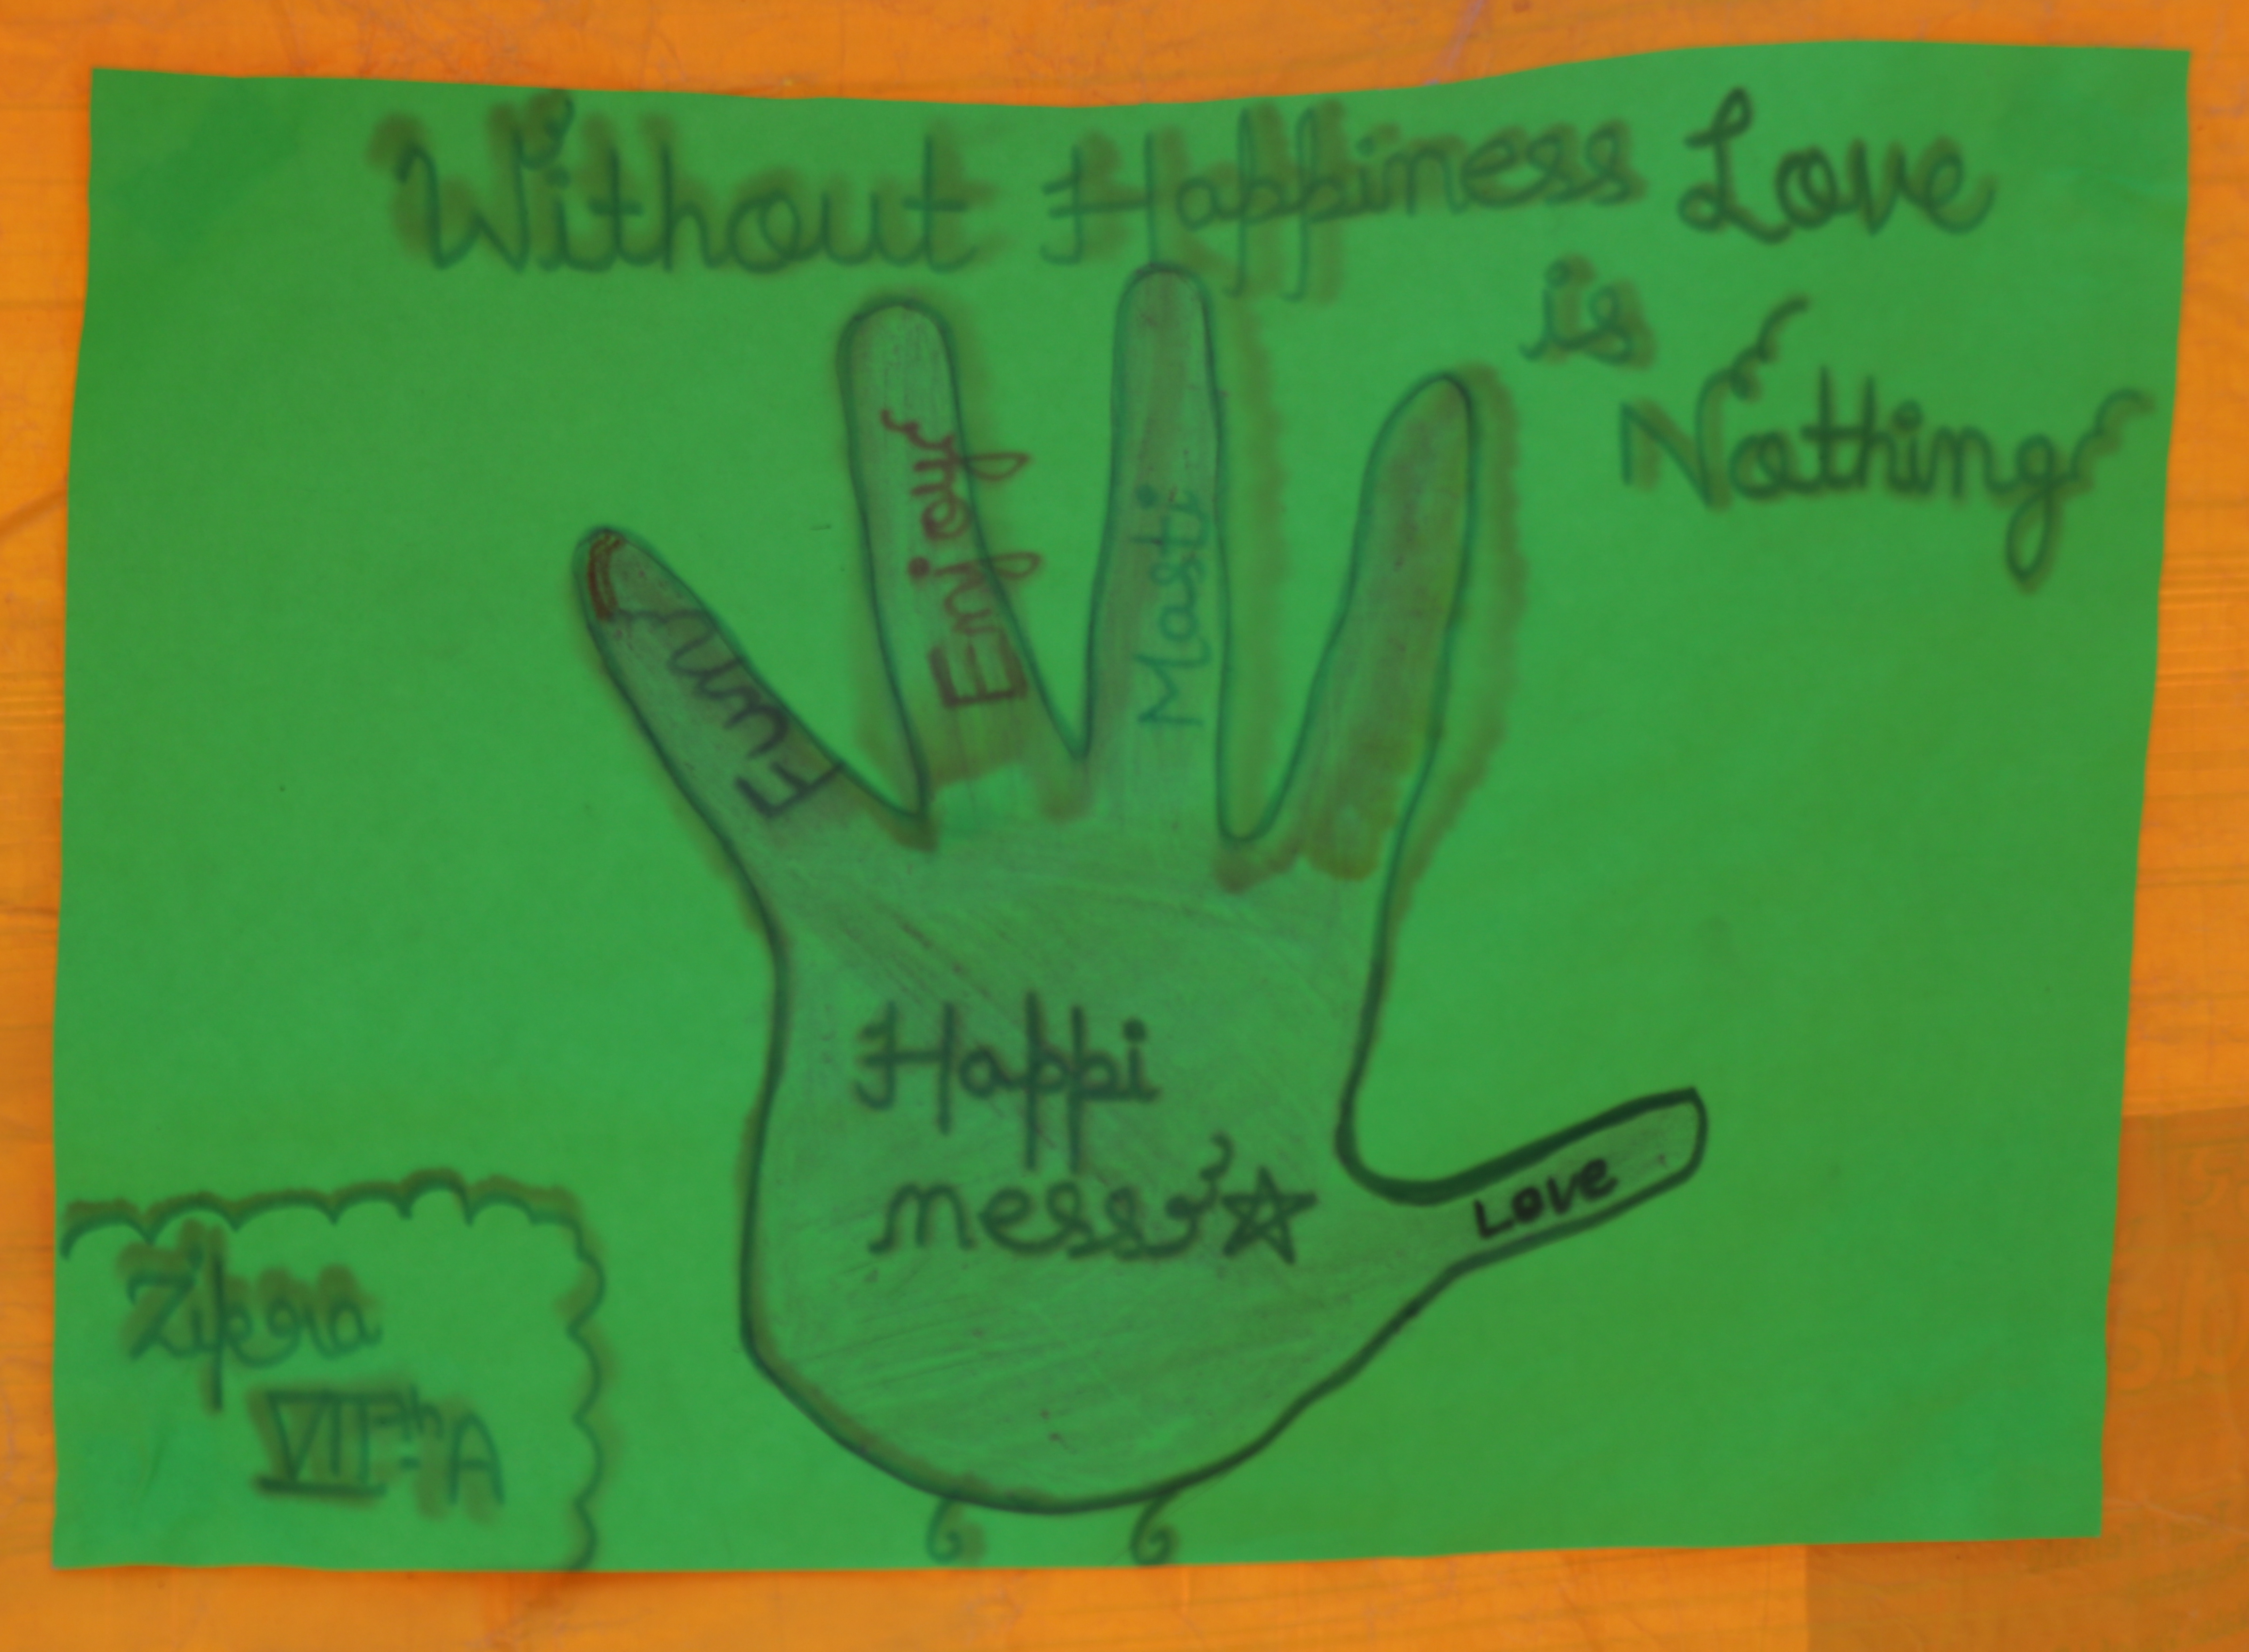 Without Happiness Love
is
Nothing
Fun
Enjoy
Masti
Love
Happi
ness
Zikra
VIIth A